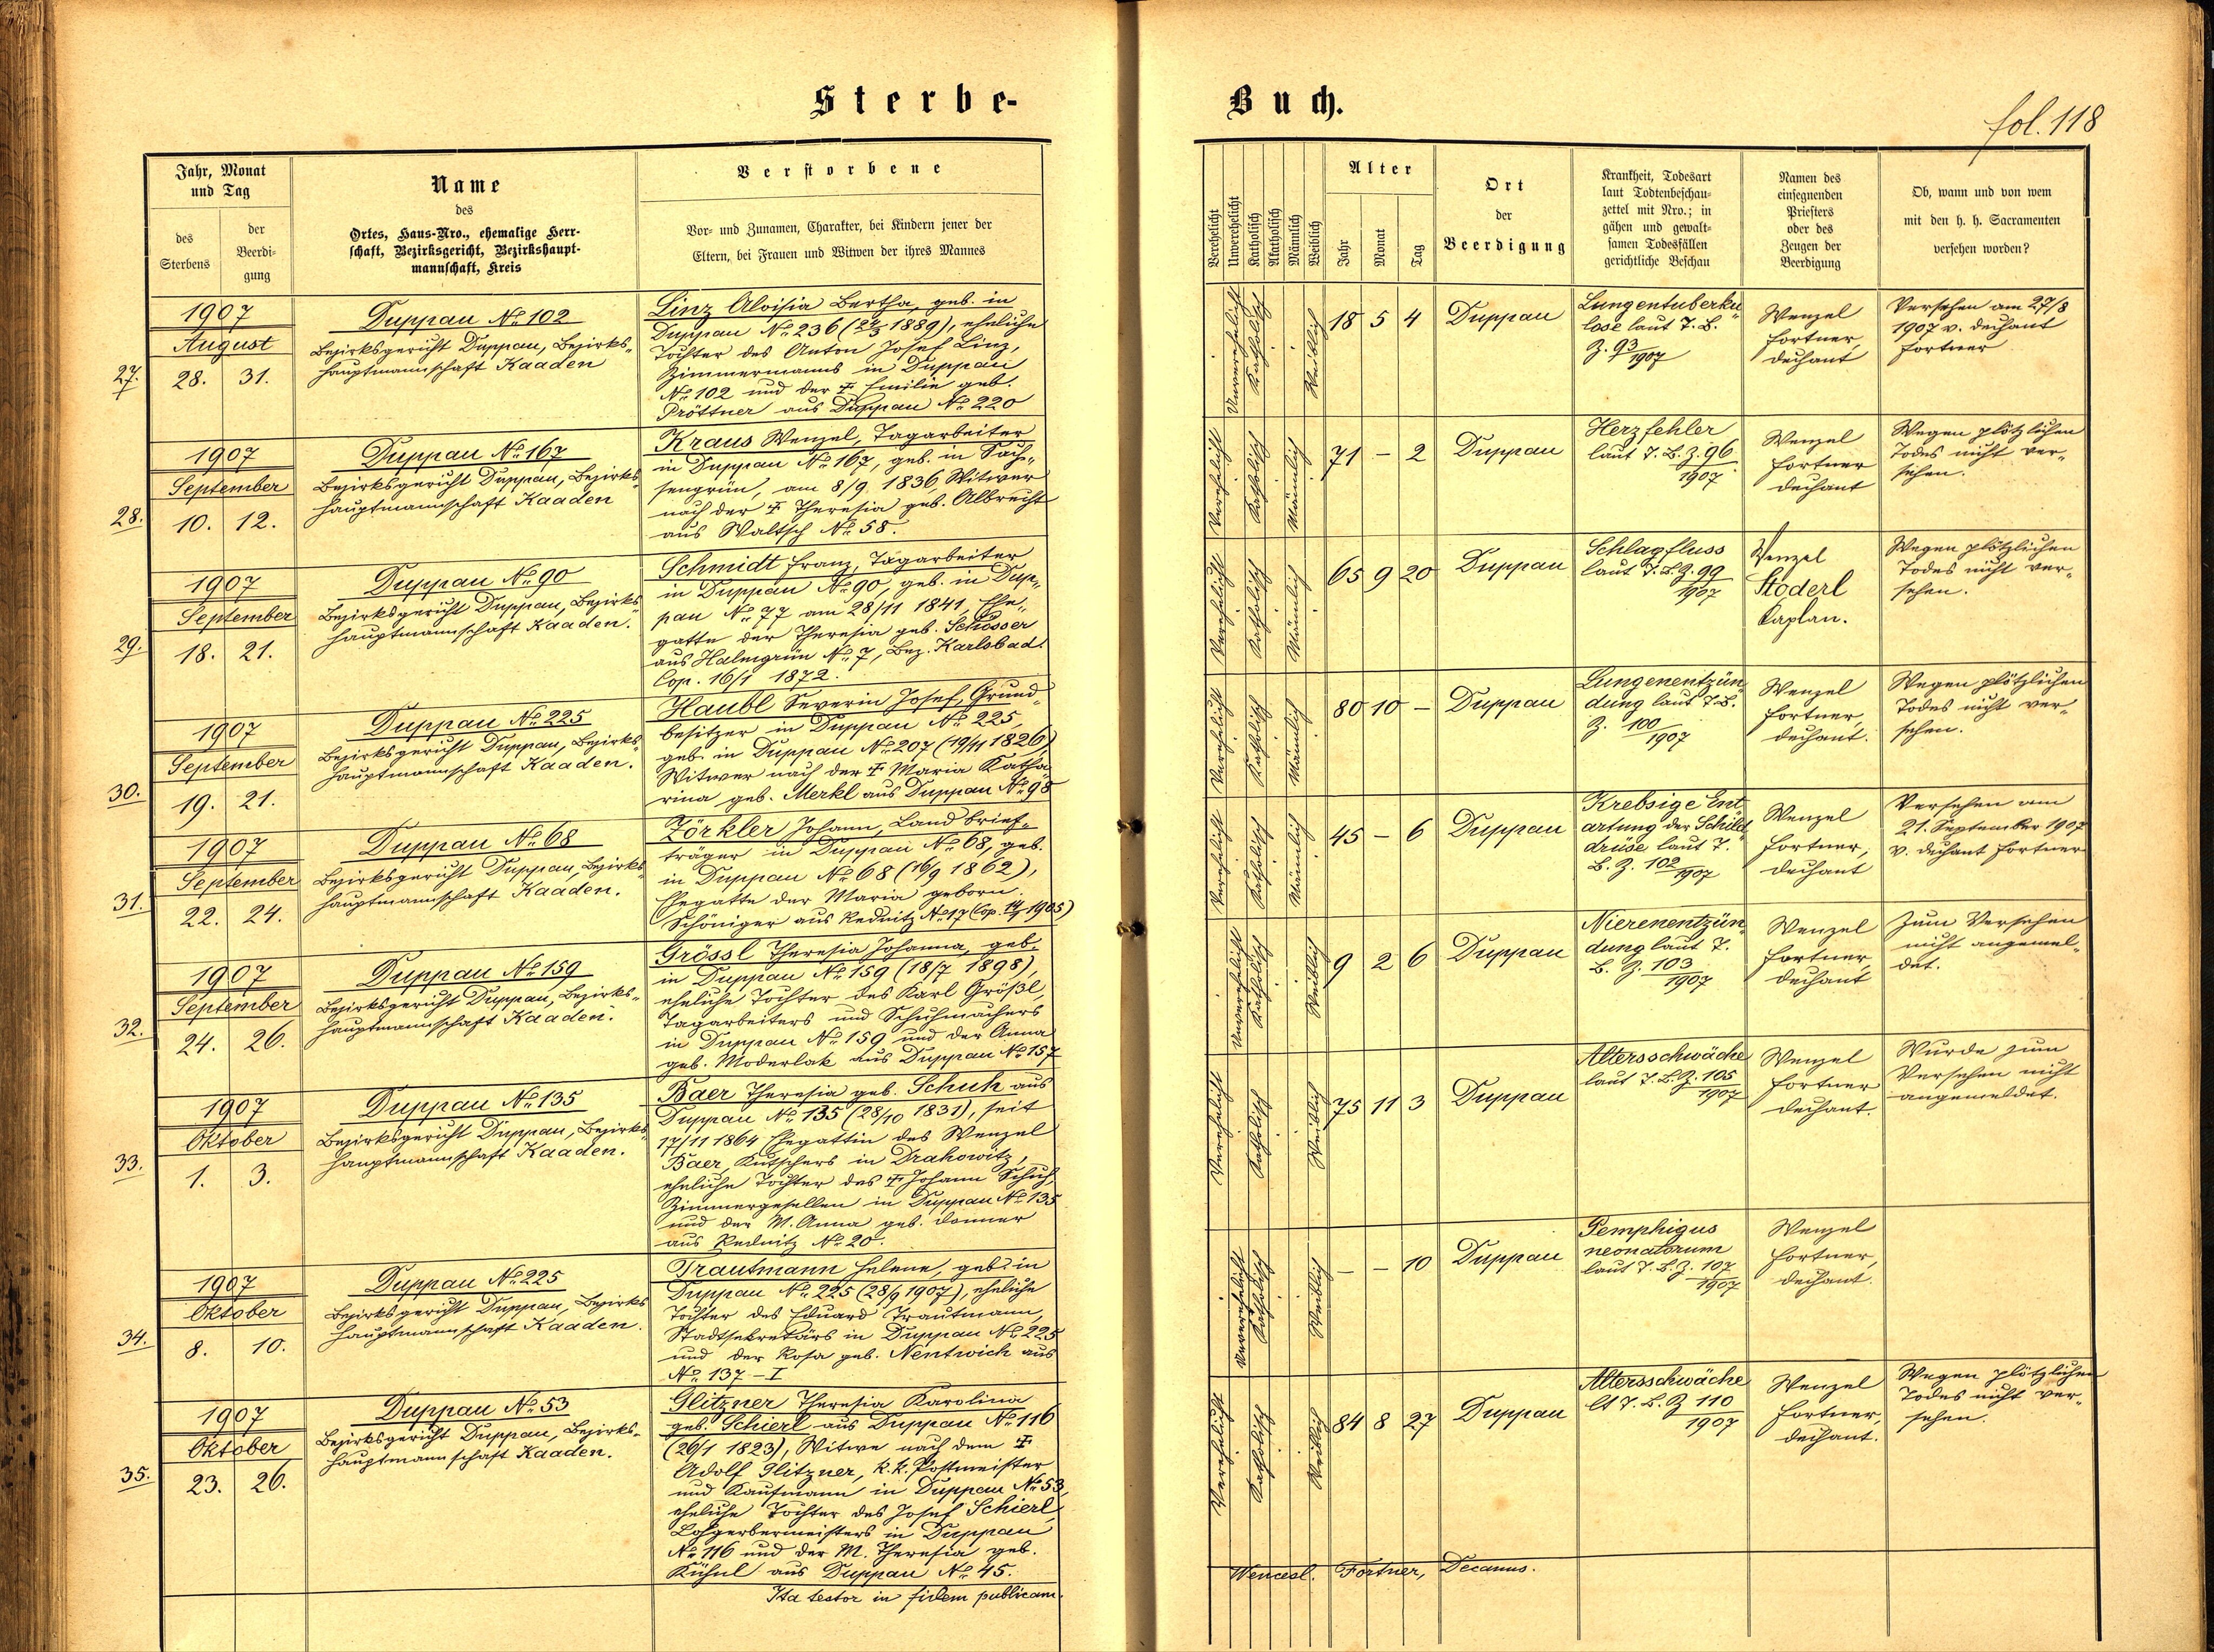 Sterbe-
Buch.
fol. 118
Jahr, Monat
und Tag
des
Sterbens
der
Beerdi-
gung
Name
des
Ortes, Haus-Nro., ehemalige Herr-
schaft, Bezirksgericht, Bezirkshaupt-
mannschaft, Kreis
Verstorbene
Vor- und Zunamen, Charakter, bei Kindern jener der
Eltern, bei Frauen und Witwen der ihres Mannes
Verehelicht
Unverehelicht
Katholisch
Akatholisch
Männlich
Weiblich
Alter
Jahr
Monat
Tag
Ort
der
Beerdigung
Krankheit, Todesart
laut Todtenbeschau-
zettel mit Nro.; in
gähen und gewalt-
samen Todesfällen
gerichtliche Beschau
Namen des
einsegnenden
Priesters
oder des
Zeugen der
Beerdigung
Ob, wann und von wem
mit den h. h. Sacramenten
versehen worden?
27.
1907
August
28. 31.
Duppau No. 102
Bezirksgericht Duppau, Bezirks-
hauptmannschaft Kaaden
Linz Aloisia Bertha, geb. in
Duppau No. 236 (24/3 1889), eheliche
Tochter des Anton Josef Linz,
Zimmermanns in Duppau
No. 102 und der † Emilie geb.
Pröttner aus Duppau No. 220
Unverehelicht
Katholisch
Weiblich
18 5 4
Duppau
Lungentuberku-
lose laut T. B.
Z. 93/1907
Wenzel
Fortner,
Dechant
Versehen am 27/8
1907 v. Dechant
Fortner
28.
1907
September
10. 12.
Duppau No. 167
Bezirksgericht Duppau, Bezirks-
hauptmannschaft Kaaden
Kraus Wenzel, Tagarbeiter
in Duppau No. 167, geb. in Sach-
sengrün, am 8/9. 1836, Witwer
nach der † Theresia geb. Albrecht
aus Waltsch No. 58.
Verehelicht
Katholisch
Männlich
71 - 2
Duppau
Herzfehler
laut T. B. Z. 96
1907
Wenzel
Fortner
Dechant
Wegen plötzlichen
Todes nicht ver-
sehen.
29.
1907
September
18. 21.
Duppau No. 90
Bezirksgericht Duppau, Bezirks-
hauptmannschaft Kaaden.
Schmidt Franz, Tagarbeiter
in Duppau No. 90, geb. in Dup-
pau No. 77 am 28/11 1841, Ehe-
gatte der Theresia geb. Schösser
aus Halmgrün No. 7, Bez. Karlsbad.
Cop. 16/1 1872.
Verehelicht
Katholisch
Männlich
65 9 20
Duppau
Schlagfluss
laut T. B. Z. 99
1907
Wenzel
Stoderl
Kaplan.
Wegen plötzlichen
Todes nicht ver-
sehen.
30.
1907
September
19. 21.
Duppau No. 225
Bezirksgericht Duppau, Bezirks-
hauptmannschaft Kaaden.
Haubl Severin Josef, Grund-
besitzer in Duppau No. 225,
geb. in Duppau No. 207 (19/11 1826),
Witwer nach der † Maria Katha-
rina geb. Merkl aus Duppau No. 98
Verehelicht
Katholisch
Männlich
80 10 -
Duppau
Lungenentzün-
dung laut T. B.
Z. 100
1907
Wenzel
Fortner,
Dechant.
Wegen plötzlichen
Todes nicht ver-
sehen.
31.
1907
September
22. 24.
Duppau No. 68
Bezirksgericht Duppau, Bezirks-
hauptmannschaft Kaaden.
Zörkler Johann, Landbrief-
träger in Duppau No. 68, geb.
in Duppau No. 68 (16/9 1862),
Ehegatte der Maria geborn.
Schöniger aus Rednitz No. 17 (Cop. 1905)
Verehelicht
Katholisch
Männlich
45 - 6
Duppau
Krebsige Ent-
artung der Schild-
drüse laut T.
B. Z. 102/1907
Wenzel
Fortner,
Dechant
Versehen am
21. September 1907
v. Dechant Fortner
32.
1907
September
24. 26.
Duppau No. 159
Bezirksgericht Duppau, Bezirks-
hauptmannschaft Kaaden.
Grössl Theresia Johanna, geb.
in Duppau No. 159 (18/7 1898),
eheliche Tochter des Karl Größl,
Tagarbeiters und Schuhmachers
in Duppau No. 159 und der Anna
geb. Moderlak aus Duppau No. 157
Unverehelicht
Katholisch
Weiblich
9 2 6
Duppau
Nierenentzün-
dung laut T.
B. Z. 103
1907
Wenzel
Fortner,
Dechant
Zum Versehen
nicht angemel-
det.
33.
1907
Oktober
1. 3.
Duppau No. 135
Bezirksgericht Duppau, Bezirks-
hauptmannschaft Kaaden.
Baer Theresia geb. Schuh aus
Duppau No. 135 (28/10 1831), seit
17/11 1864 Ehegattin des Wenzel
Baer, Kutschers in Drahowitz,
eheliche Tochter des † Johann Schuh,
Zimmergesellen in Duppau No. 135
und der M. Anna geb. Donner
aus Rednitz No. 20.
Verehelicht
Katholisch
Weiblich
75 11 3
Duppau
Altersschwäche
laut T. B. Z. 105
1907
Wenzel
Fortner
Dechant.
Wurde zum
Versehen nicht
angemeldet.
34.
1907
Oktober
8. 10.
Duppau No. 225
Bezirksgericht Duppau, Bezirks
hauptmannschaft Kaaden.
Trautmann Helene, geb. in
Duppau No. 225 (28/9 1907), eheliche
Tochter des Eduard Trautmann,
Stadtsekretärs in Duppau No. 225
und der Rosa geb. Nentwich aus
No. 137 - I
Unverehelicht
Katholisch
Weiblich
- - 10
Duppau
Pemphigus
neonatorum
laut T. B. Z. 107
1907
Wenzel
Fortner,
Dechant.
35.
1907
Oktober
23. 26.
Duppau No. 53
Bezirksgericht Duppau, Bezirks-
hauptmannschaft Kaaden.
Glitzner Theresia Karolina
geb. Schierl aus Duppau No. 116
(26/1 1823), Witwe nach dem †
Adolf Glitzner, k. k. Postmeister
und Kaufmann in Duppau No. 53,
eheliche Tochter des Josef Schierl,
Lohgerbermeisters in Duppau
No. 116 und der M. Theresia geb.
Kühnl aus Duppau No. 45.
Verehelicht
Katholisch
Weiblich
84 8 27
Duppau
Altersschwäche
lt T. B. Z 110
1907
Wenzel
Fortner,
Dechant.
Wegen plötzlichen
Todes nicht ver-
sehen.
Ita testor in fidem publicam.
Wencesl. Fortner, Decanus.